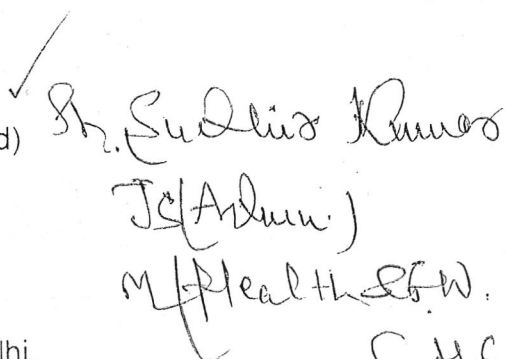 d) Sh. Sudhir Kumar
JS(Admn.)
M/Health & F.W.
lhi